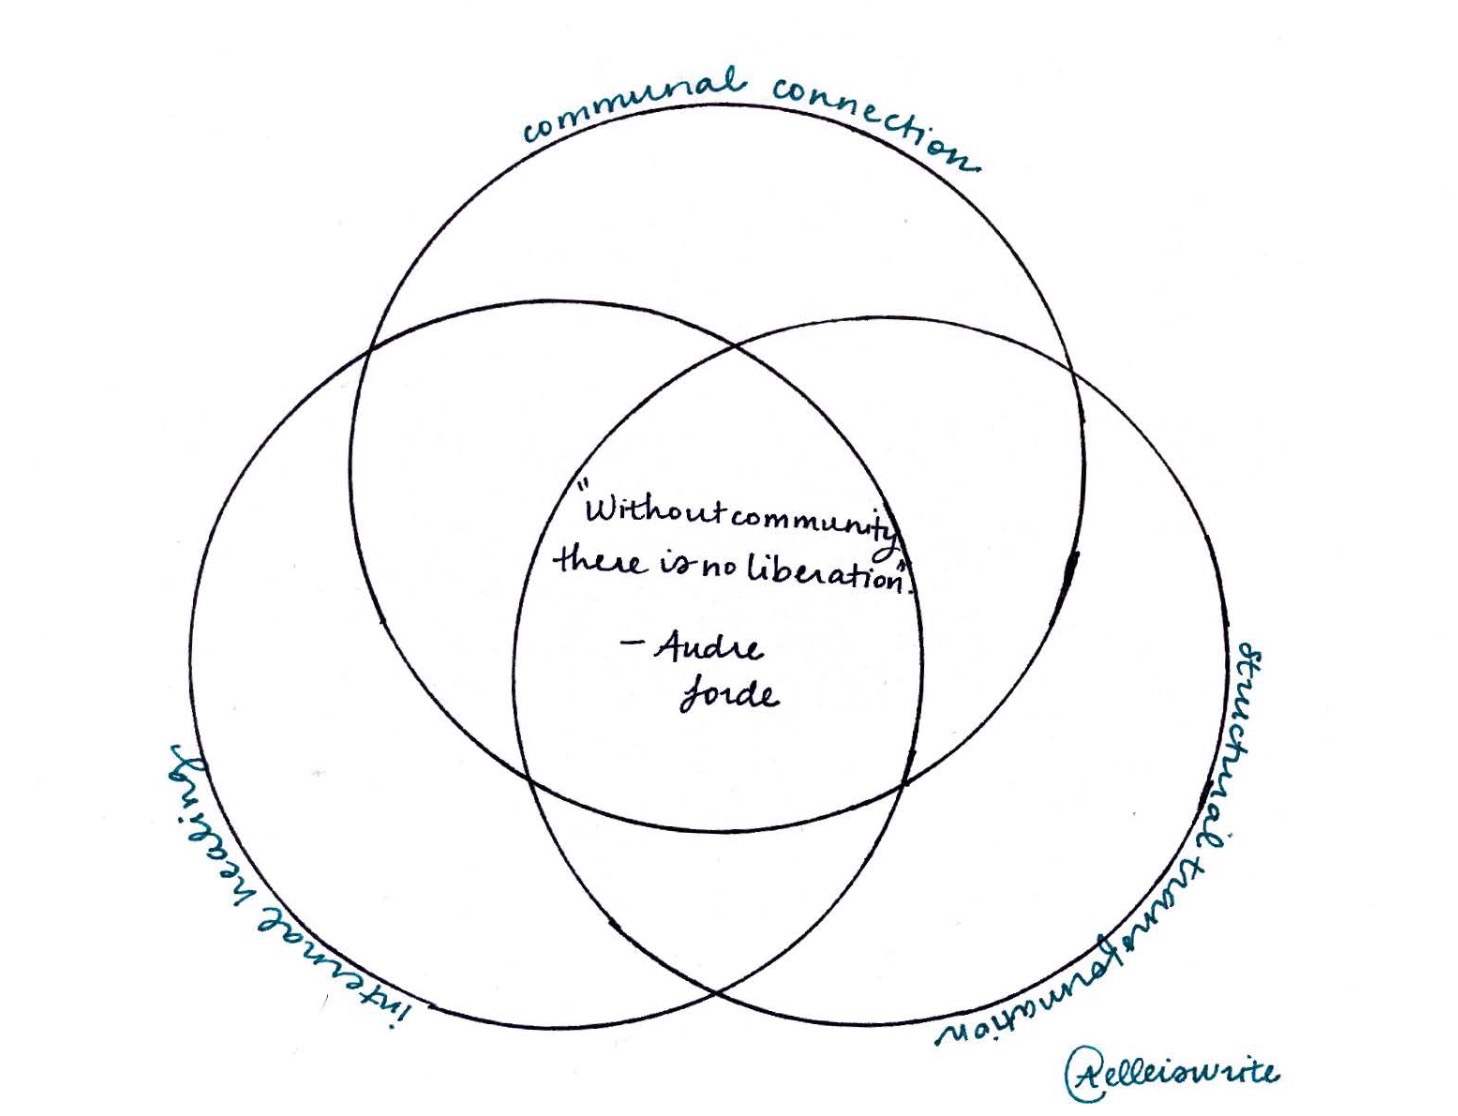 communal connection
"Without community
there is no liberation".
– Audre
Lorde
internal healing
structural transformation
@elleiswrite